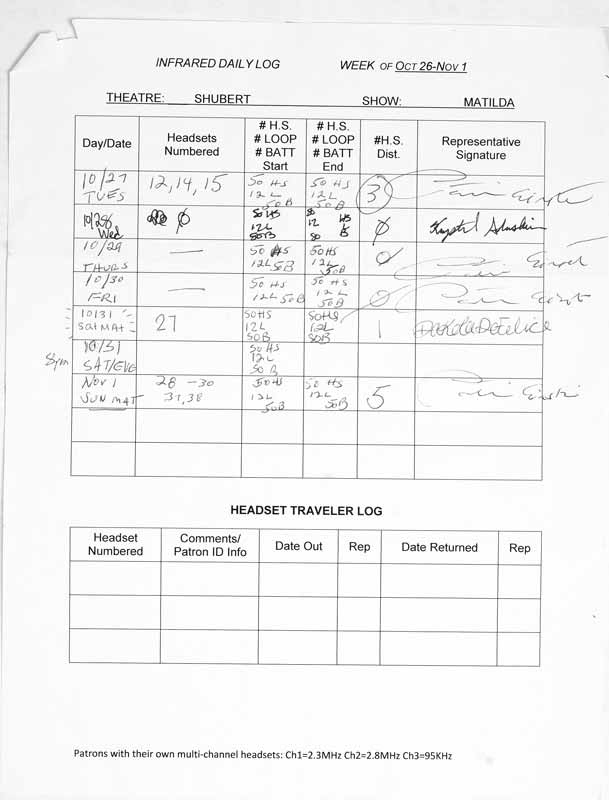 INFRARED DAILY LOG WEEK OF OCT 26-NOV 1
THEATRE: SHUBERT SHOW: MATILDA
Day/Date Headsets Numbered # H.S. # LOOP # BATT Start # H.S. # LOOP # BATT End #H.S. Dist. Representative Signature
10/27 TUES 12,14,15 50 HS 12 L 50B 50 HS 12 L 50B 3
10/28 Wed Ø 50 HS 12L 50B 50 HS 12 L 50 B Ø Krystal
10/29 THURS — 50 HS 12L 50B 50HS 12L 50B 0
10/30 FRI — 50 HS 12L 50B 50 HS 12 L 50B 0
10/31 SAT MAT 27 50HS 12L 50B 50HS 12L 50B 1
8pm 10/31 SAT/EVE 50 HS 12 L 50 B
Nov 1 SUN MAT 28 -30 37,38 50HS 12L 50B 50 HS 12L 50B 5
HEADSET TRAVELER LOG
Headset Numbered Comments/ Patron ID Info Date Out Rep Date Returned Rep
Patrons with their own multi-channel headsets: Ch1=2.3MHz Ch2=2.8MHz Ch3=95KHz